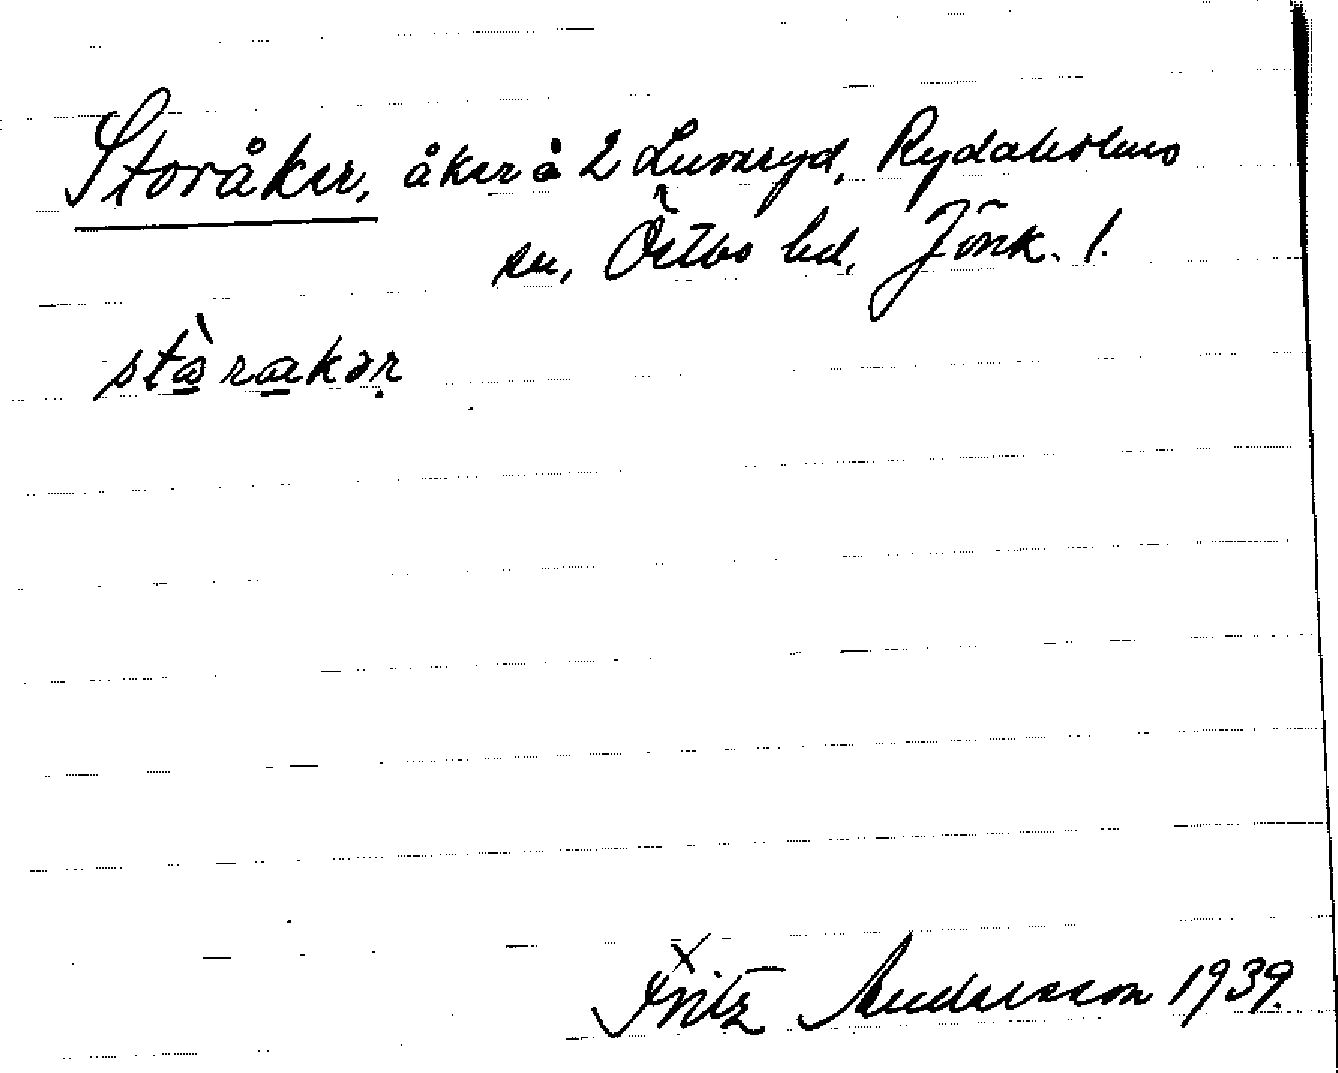 Storåker, åker å 2 Luvaryd, Rydaholms
sn, Östbo hd, Jönk. l.
stòrakər
Fritz Andersson 1939.